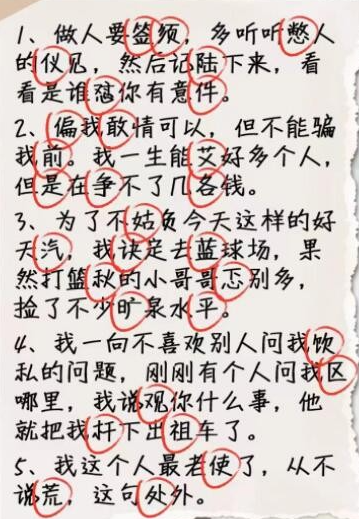 1、做人要签须，多听听憋人
的仪见，然后记陆下来，看
看是谁怼你有意件。
2、偏我敢情可以，但不能骗
我前。我一生能艾好多个人，
但是在争不了几各钱。
3、为了不姑负今天这样的好
天汽，我诀定去蓝球场，果
然打篮秋的小哥哥忑别多，
捡了不少旷泉水平。
4、我一向不喜欢别人问我饮
私的问题，刚刚有个人问我区
哪里，我说观你什么事，他
就把我扦下出祖车了。
5、我这个人最老使了，从不
说荒，这句处外。